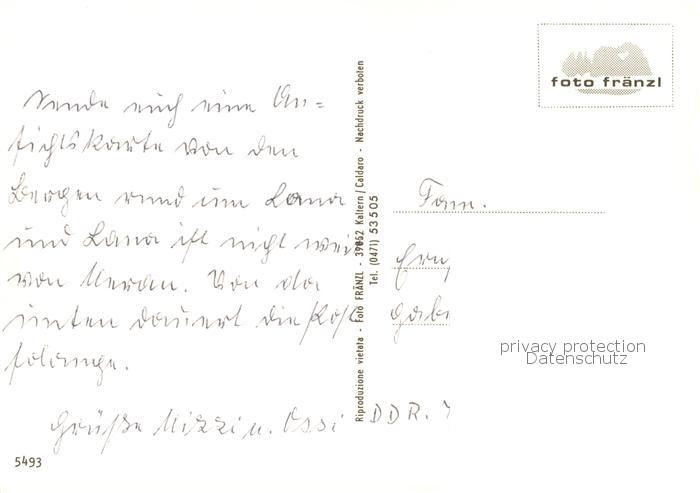 foto fränzl
Sende euch eine An=
sichtskarte von den
Bergen rund um Lana
und Lana ist nicht wei
von Meran. Von da
unten dauert die Post
so lange.
Grüße Mizzi u. Ossi
5493
Riproduzione vietata - Foto FRÄNZL - 39052 Kaltern/Caldaro - Nachdruck verboten
Tel. (0471) 53505
Fam.
Ern
Gab
DDR.
privacy protection
Datenschutz